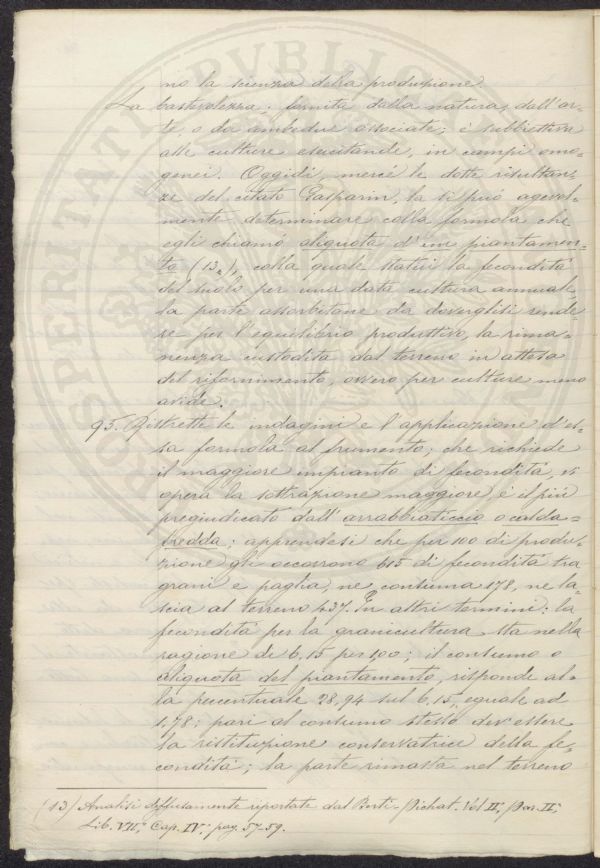 no la scienza della produzione.
La bastevolezza; fornita dalla natura, dall'ar-
te, o da ambedue associate; è subbiettiva
alle culture esercitande, in campi omo-
genei. Oggidì, mercè le dotte risultan-
ze del citato Gasparin, la si può agevol-
mente determinare colla formola che
egli chiamò aliquota d'un piantamen-
to (13), colla quale statuì la fecondità
del suolo per una data cultura annuale,
la parte assorbitane da dovergliesi rende-
re per l'equilibrio produttivo, la rima-
nenza custodita dal terreno in attesa
del rifornimento, ovvero per culture meno
avide.
95. Ristrette le indagini e l'applicazione d'es-
sa formola al frumento; che richiede
il maggiore impianto di fecondità, vi
opera la sottrazione maggiore, è il più
pregiudicato dall'arrabbiaticcio o calda-
fredda; apprendesi che per 100 di produ-
zione gli occorrono 615 di fecondità tra
grani e paglia, ne consuma 178, ne la-
scia al terreno 437. In altri termini: la
fecondità per la granicultura sta nella
ragione di 6,15 per 100; il consumo o
aliquota del piantamento, risponde al-
la percentuale 28,94 sul 6.15, eguale ad
1,78; pari al consumo stesso dev'essere
la ristituzione conservatrice della fe-
condità; la parte rimasta nel terreno
(13) Analisi diffusamente riportate dal Berti-Pichat. Vol. II, Par. II,
Lib. VII, Cap. IV, pag. 57-59.
PROSPERITATI PVBLICAE